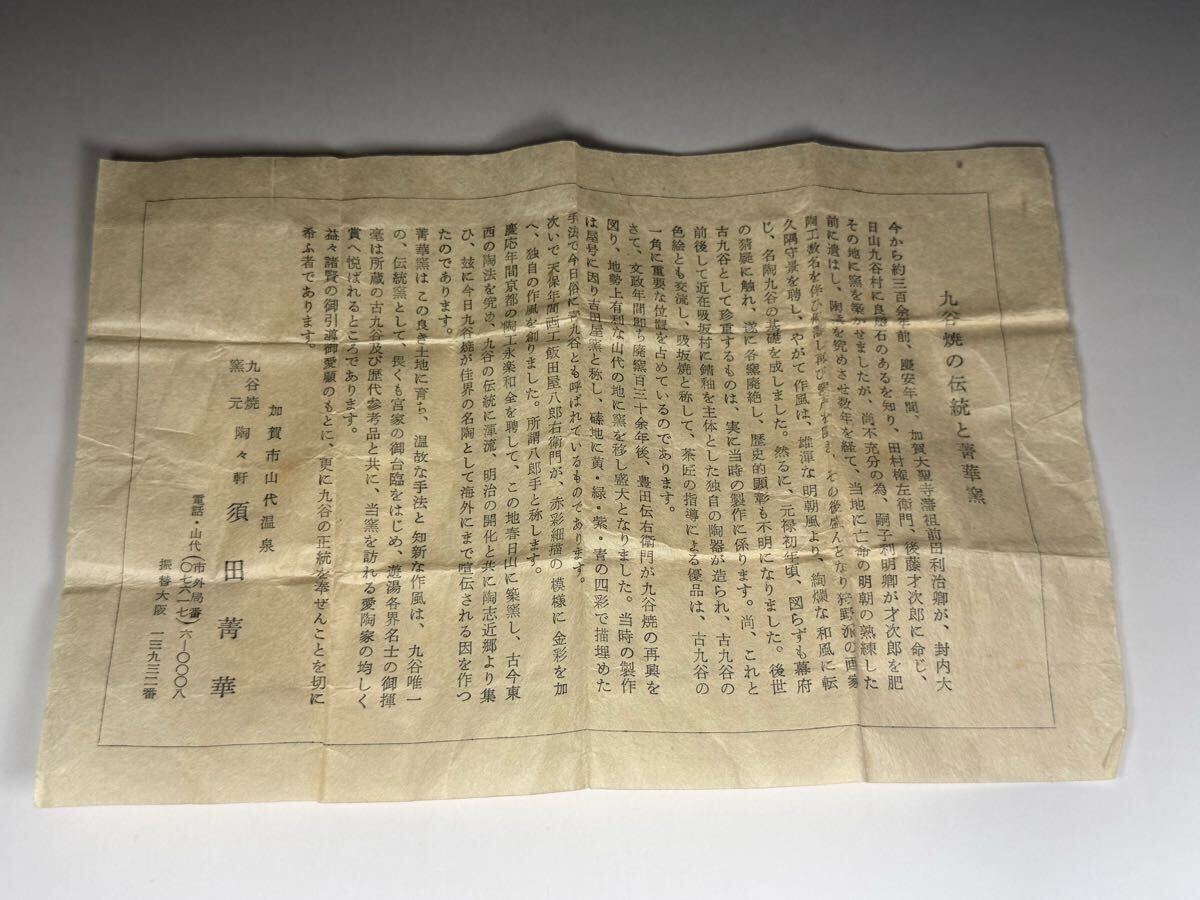 九谷焼の伝統と菁華窯
今から約三百余年前、慶安年間、加賀大聖寺藩祖前田利治卿が、封内大
日山九谷村に良磁石のあるを知り、田村権左衛門、後藤才次郎に命じ、
その地に窯を築かせましたが、尚不充分の為、嗣子利明卿が才次郎を肥
前に遣はし、陶法を究めさせ数年を経て、当地に亡命の明朝の熟練した
陶工数名を伴ひ再び その後盛んとなり狩野派の画家
久隅守景を聘し、やがて作風は、雄渾な明朝風より、絢爛な和風に転
じ、名陶九谷の基礎を成しました。然るに、元禄初年頃、図らずも幕府
の猜疑に触れ、遂に各窯廃絶し、歴史的顕彰も不明になりました。後世
古九谷として珍重するものは、実に当時の製作に係ります。尚、これと
前後して近在吸坂村に錆釉を主体とした独自の陶器が造られ、古九谷の
色絵とも交流し、吸坂焼と称して、茶匠の指導による優品は、古九谷の
一角に重要な位置を占めているのであります。
さて、文政年間即ち廃窯百三十余年後、豊田伝右衛門が九谷焼の再興を
図り、地勢上有利な山代の地に窯を移し盛大となりました。当時の製作
は屋号に因り吉田屋窯と称し、磁地に黄・緑・紫・青の四彩で描埋めた
手法で今日俗に青九谷とも呼ばれているものであります。
次いで天保年間画工飯田屋八郎右衛門が、赤彩細描の模様に金彩を加
へ、独自の作風を創りました。所謂八郎手と称します。
慶応年間京都の陶工永楽和全を聘して、この地春日山に築窯し、古今東
西の陶法を究め、九谷の伝統に渾流、明治の開化と共に陶志近郷より集
ひ、玆に今日九谷焼が佳界の名陶として海外にまで喧伝される因を作つ
たのであります。
菁華窯はこの良き土地に育ち、温故な手法と知新な作風は、九谷唯一
の、伝統窯として、畏くも宮家の御台臨をはじめ、遊湯各界名士の御揮
毫は所蔵の古九谷及び歴代参考品と共に、当窯を訪れる愛陶家の均しく
賞へ悦ばれるところであります。
益々諸賢の御引導御愛顧のもとに、更に九谷の正統を奉ぜんことを切に
希ふ者であります。
加賀市山代温泉
九谷焼
窯元 陶々軒 須田菁華
電話・山代(市外局番〇七六一七)六―〇〇〇八
振替大阪 一三九三二番